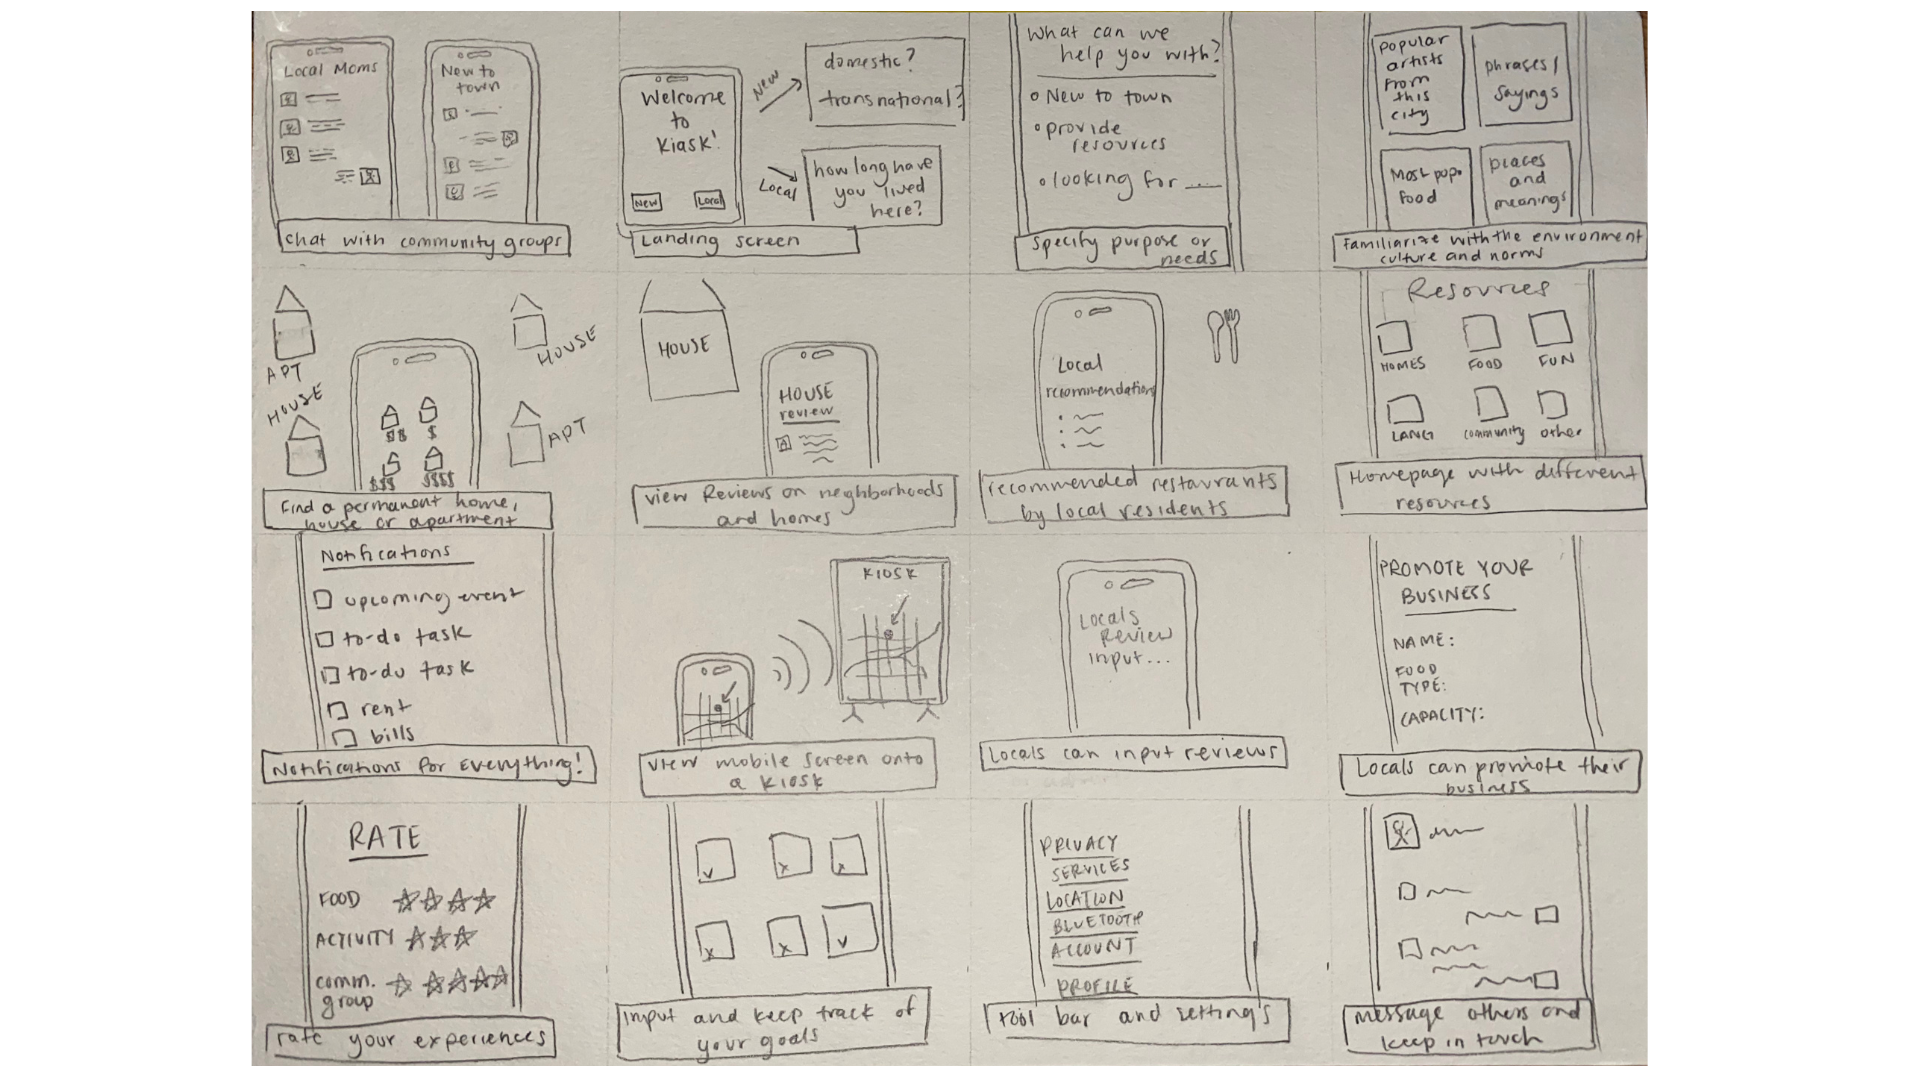 Local Moms
New to
town
chat with community groups
Welcome
to
Kiask!
New
Local
New
domestic?
transnational?
Local
how long have
you lived
here?
Landing screen
What can we
help you with?
New to town
provide
resources
looking for __
specify purpose or
needs
popular
artists
from
this
city
phrases/
sayings
Most pop.
food
places
and
meanings
Familiarize with the environment
culture and norms
APT
HOUSE
HOUSE
APT
$$
$
$$$
$$$$
Find a permanent home,
house or apartment
HOUSE
HOUSE
review
view Reviews on neghborhoods
and homes
Local
recommendations
recommended restaurants
by local residents
Resources
HOMES
FOOD
FUN
LANG
community
other
Homepage with different
resources
Notifications
upcoming event
to-do task
to-do task
rent
bills
Notifications for Everything!
KIOSK
view mobile screen onto
a KIOSK
Locals
Review
input...
Locals can input reviews
PROMOTE YOUR
BUSINESS
NAME:
FOOD
TYPE:
CAPACITY:
Locals can promote their
business
RATE
FOOD
ACTIVITY
comm.
group
rate your experiences
Input and keep track of
your goals
PRIVACY
SERVICES
LOCATION
BLUETOOTH
ACCOUNT
PROFILE
tool bar and setting's
message others and
keep in touch